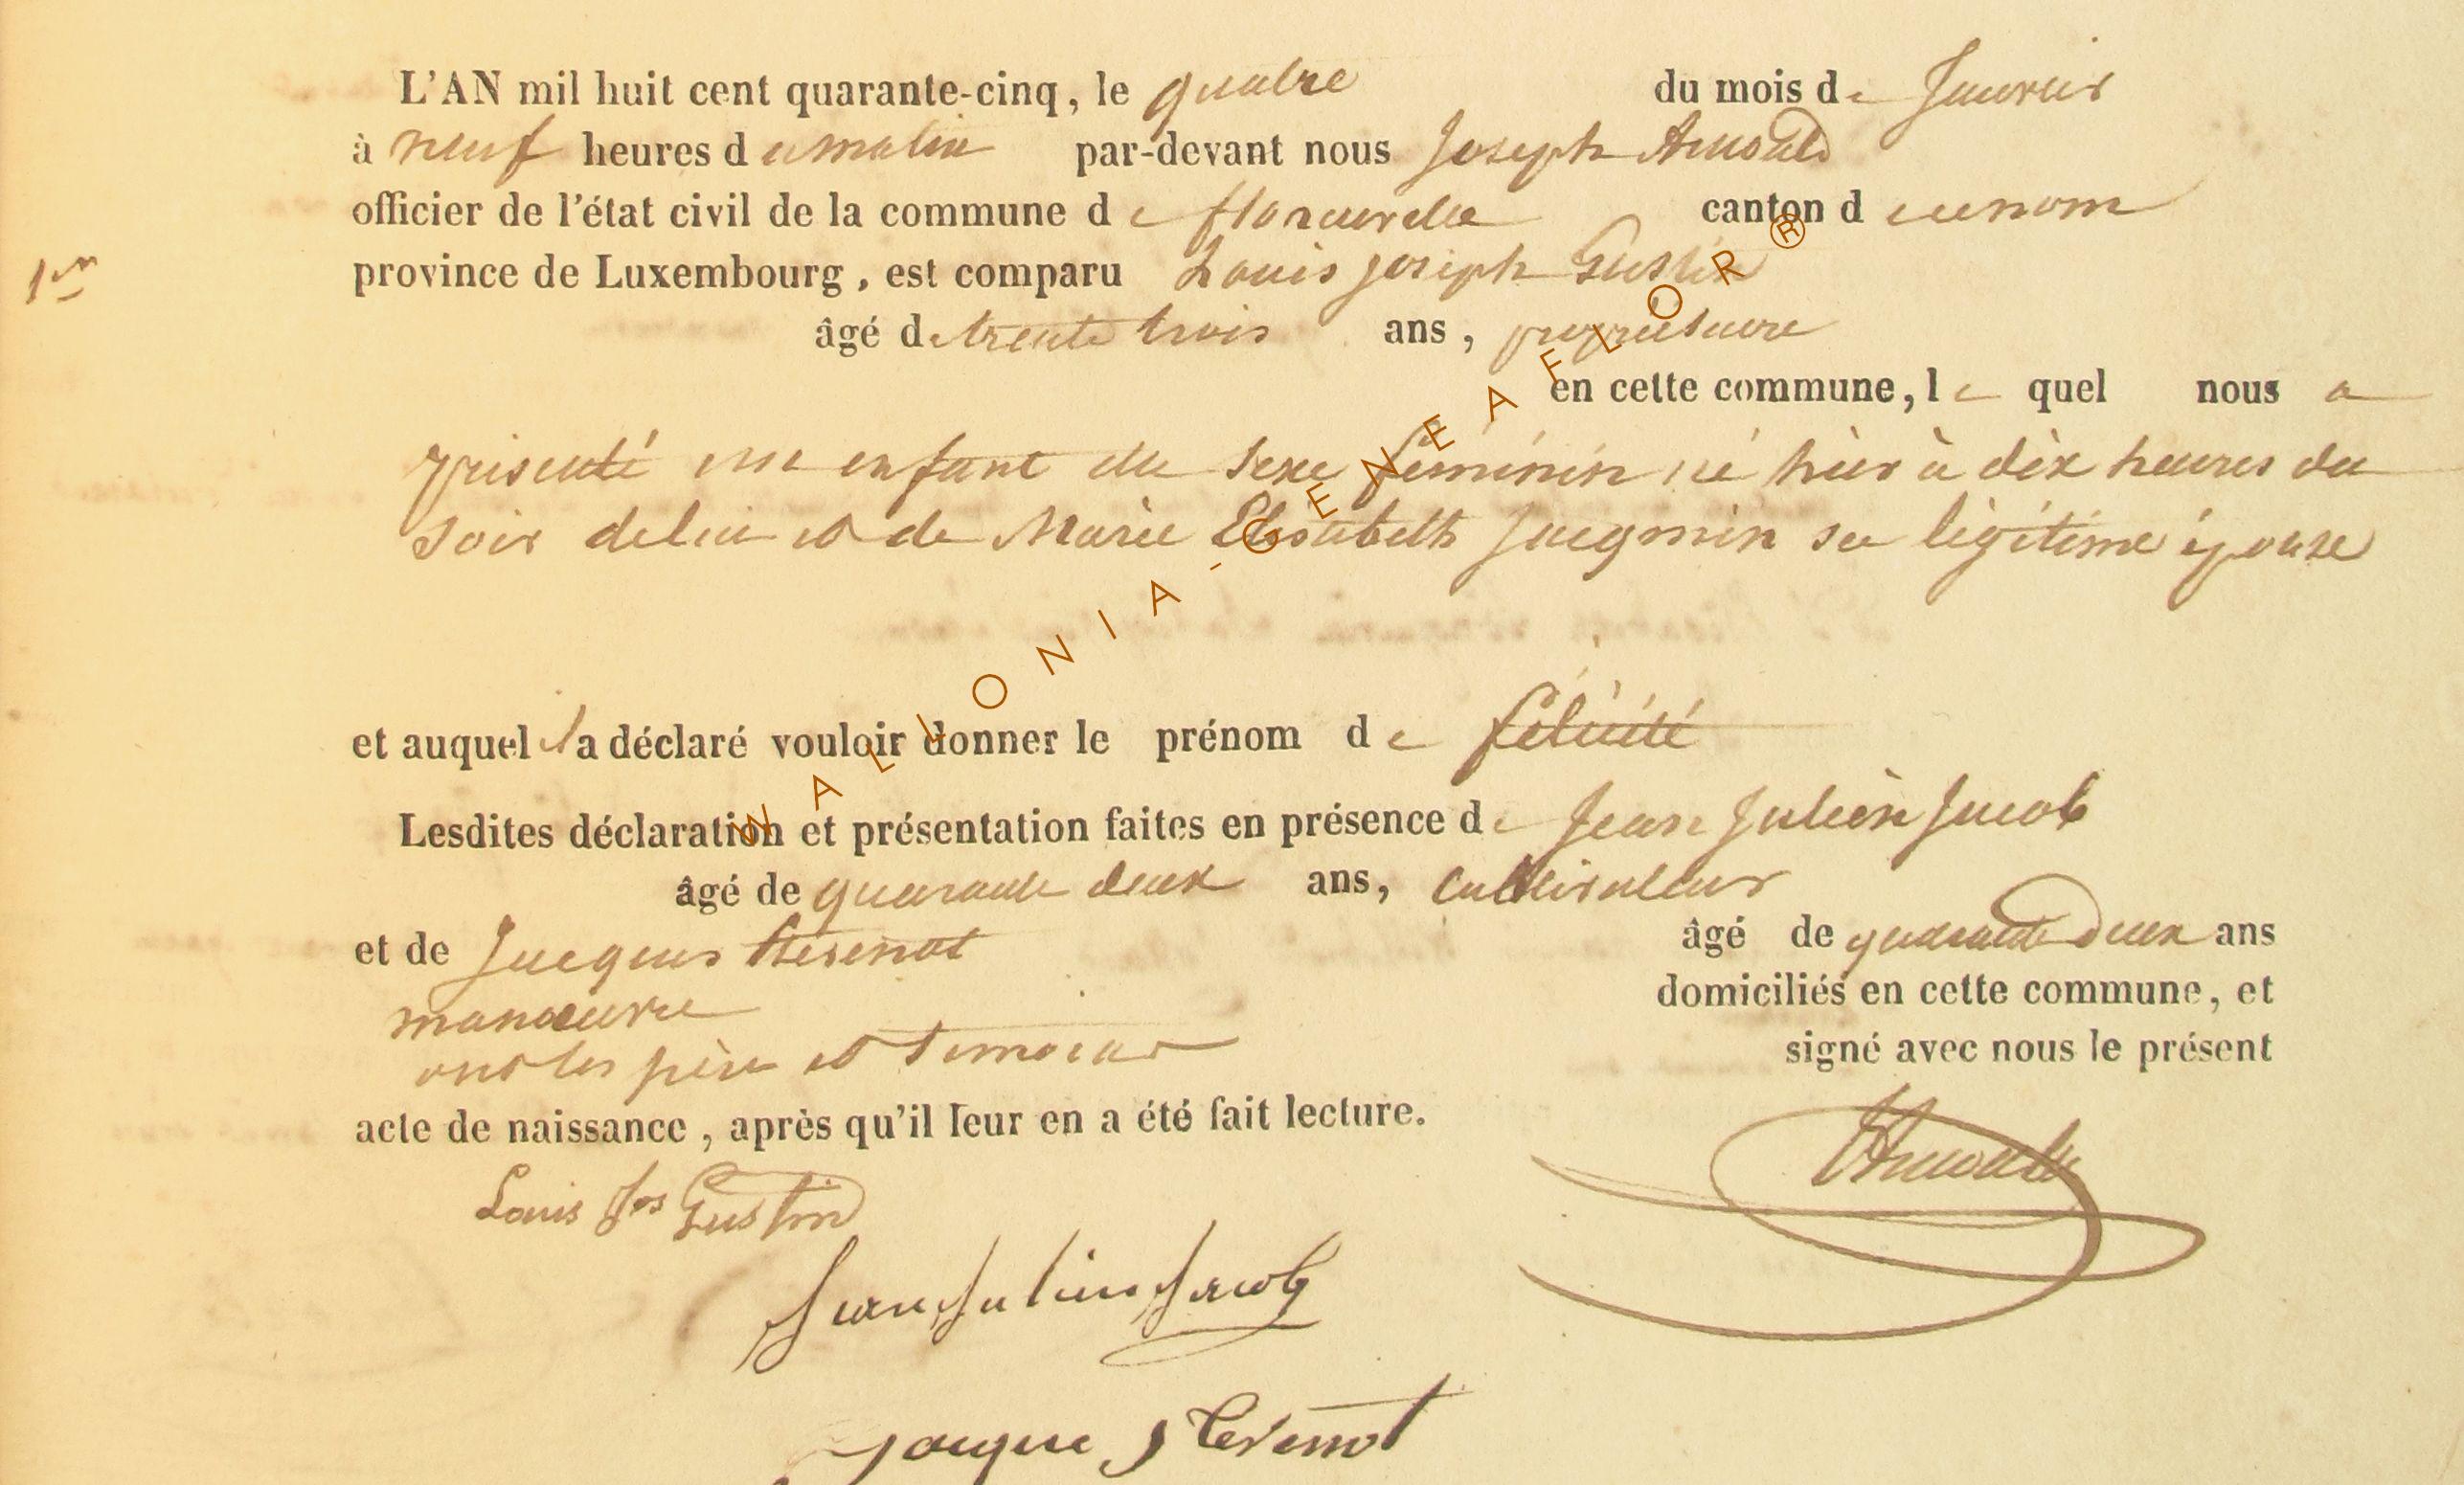 L'AN mil huit cent quarante-cinq, le quatre du mois de Janvier
à neuf heures du matin par-devant nous Joseph Arnould
officier de l'état civil de la commune de canton d ce nom
1er
province de Luxembourg, est comparu Louis Joseph Gustin
âgé de trente trois ans, propriétaire
en cette commune, le quel nous a
présenté un enfant du sexe féminin né hier à dix heures du
soir de lui et de Marie Elisabeth Jacqmin sa légitime épouse
et auquel il a déclaré vouloir donner le prénom de félicité
Lesdites déclaration et présentation faites en présence de Jean Julien Jacob
âgé de quarante deux ans, cultivateur
et de Jacques âgé de quarante deux ans
manœuvre domiciliés en cette commune, et
ont les père et témoins signé avec nous le présent
acte de naissance, après qu'il leur en a été fait lecture.
Louis Jos Gustin
Jean Julien Jacob
WALLONIA-GENEAFLOR®